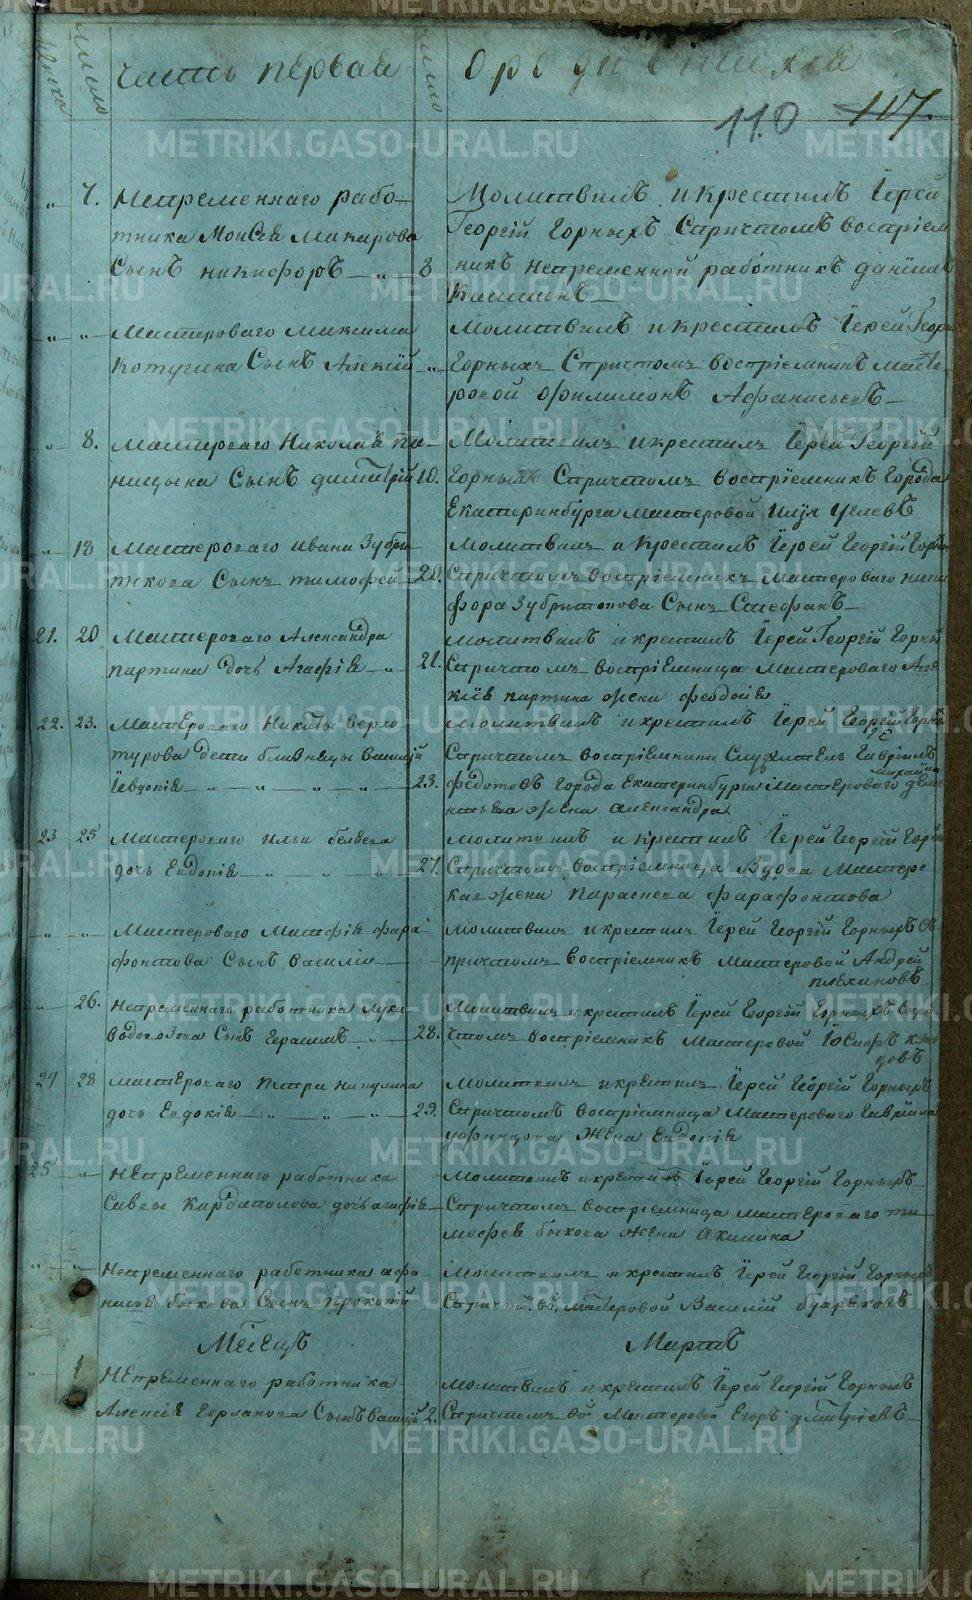 часть первая о родившихся
110 107.
" 7. Непременнаго рабо-
тника Моисея Макарова
Сынъ никифоръ " 8
Молитвилъ и крестилъ Іерей
Георгій Горныхъ Спричтомъ воспріем
никъ непременной работникъ даніилъ
" " Мастероваго Максима
Котугина Сынъ Алексій "
Молитвилъ и крестилъ Іерей Геор
Горныхъ Спричтомъ воспріемникъ Масте
ровой Филимонъ Афанасьевъ
" 8. Мастероваго Николая
Сынъ димитрій 10.
Молитвилъ и крестилъ Іерей Георгій
Горныхъ Спричтомъ воспріемникъ Города
Екатеринбурга мастеровой
" 18 Мастероваго ивана Зубри
ткова Сынъ тимофей 20.
Молитвилъ и крестилъ Іерей Георгій Горн
Спричтомъ воспріемникъ Мастероваго ники
фора Сынъ Стефанъ
21. 20 Мастероваго Александра
партина дочь Агафія " 21.
Молитвилъ и крестилъ Іерей Георгій Горны
Спричтомъ воспріемница Мастероваго Але
ксія партина жена феодосія
22. 23. Мастероваго Никиты Верхо
турова дети близнецы василій
Іевдокія " " " " " 23.
Молитвилъ и крестилъ Іерей Георгій Горны
Спричтомъ воспріемники Служитель Гавріилъ
федотовъ Города Екатеринбурга Мастероваго
жена александра
23 25 Мастероваго ильи беляева
дочь Евдокія " " " 27.
Молитвилъ и крестилъ Іерей Георгій Горны
Спричтомъ воспріемница Вдова Мастерс
кая жена Параскева фарафонтова
" " Мастероваго Матфія фара
фонтова Сынъ Василій
Молитвилъ и крестилъ Іерей Георгій Горныхъ Съ
причтомъ воспріемникъ Мастеровой Андрей
плехановъ
" 26. Непременнаго работника луки
Водолазова Сынъ Герасимъ " 28.
Молитвилъ и крестилъ Іерей Георгій Горныхъ Спри
чтомъ воспріемникъ Мастеровой Іосифъ
24 28 Мастероваго Петра никулина
дочь Евдокія " " " 29.
Молитвилъ и крестилъ Іерей Георгій Горныхъ
Спричтомъ воспріемница Мастероваго Гавріила
уфинцова Жена Евдокія
25. " Непременнаго работника
Саввы Кардаполова дочь агафія
Молитвилъ и крестилъ Іерей Георгій Горныхъ
Спричтомъ воспріемница мастероваго ти
мофея быкова жена Акилина
" " Непременнаго работника афа
насья быкова Сынъ прокопій
Молитвилъ и крестилъ Іерей Георгій Горныхъ
Спричтомъ во Мастеровой Василій
Месецъ Мартъ
" 1 Непременнаго работника
Алексія Горланова Сынъ василій 2.
Молитвилъ и крестилъ Іерей Георгій Горныхъ
Спричтомъ во Мастеровой Егоръ дмитріевъ
METRIKI.GASO-URAL.RU